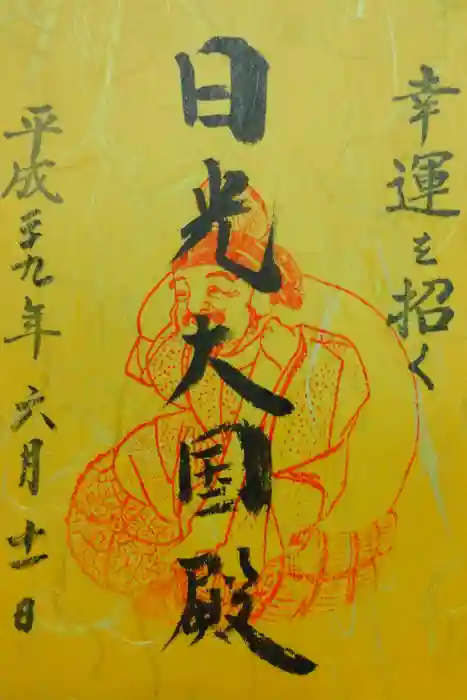 幸運を招く
日光大国殿
平成二十九年 六月十一日